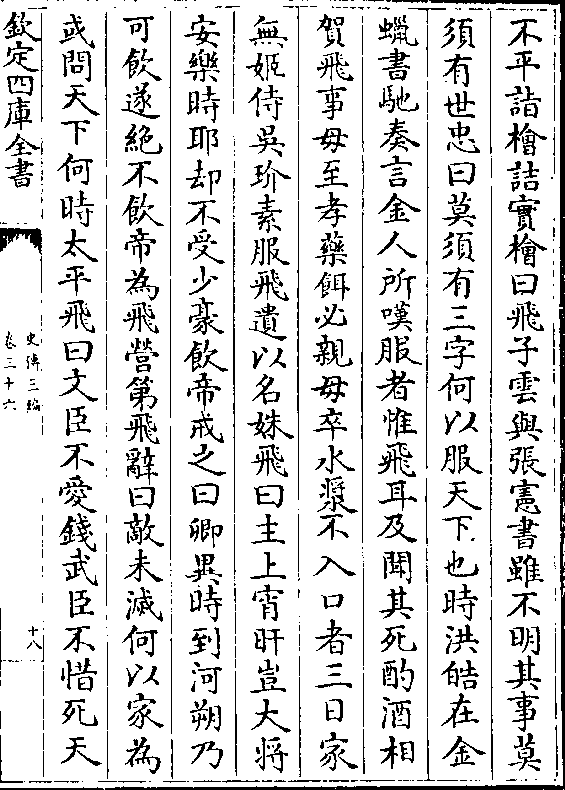 不平詣檜詰實檜曰飛子雲與張憲書雖不明其事莫
須有世忠曰莫須有三字何以服天下也時洪皓在金
蠟書馳奏言金人所嘆服者惟飛耳及聞其死酌酒相
賀飛事母至孝藥餌必親母卒水漿不入口者三日家
無姬侍吳玠素服飛遺以名姝飛曰主上宵旰豈大將
安樂時耶却不受少豪飲帝戒之曰卿異時到河朔乃
可飲遂絶不飲帝為飛營第飛辭曰敵未滅何以家為
或問天下何時太平飛曰文臣不愛錢武臣不惜死天
欽定四庫全書
史傳三編
卷三十六
十八